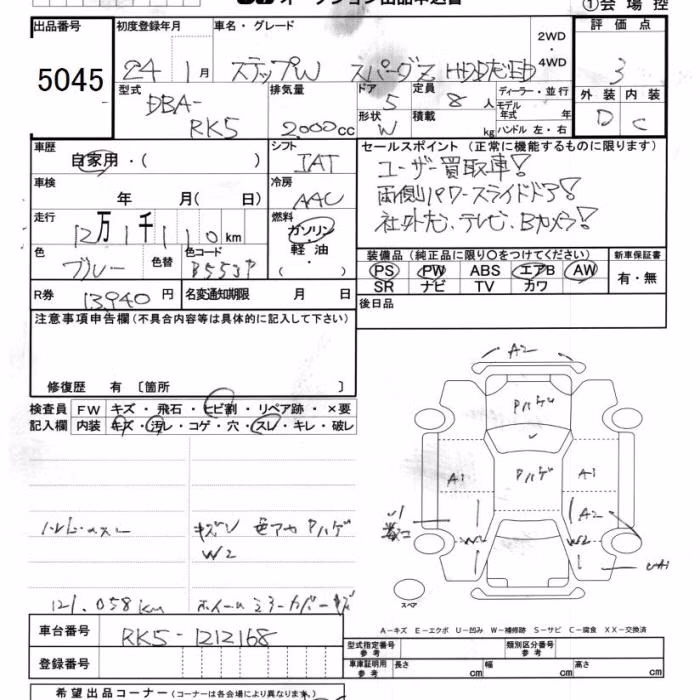 オークション出品申込書
①会場控
出品番号
5045
初度登録年月
24 1月
車名・グレード
ステップW スパーダZ HDDナビED
2WD
・
4WD
評価点
3
型式
DBA-
RK5
排気量
2000cc
ドア
5
定員
8人
形状
W
積載
kg
ディーラー・並行
モデル
年式 年
ハンドル 左・右
外装 内装
D C
車歴
自家用・( )
シフト
IAT
車検
年 月( 日)
冷房
AAC
走行
12万1千110km
燃料
ガソリン
・
軽油
・
( )
色
ブルー
色替
色コード
B553P
R券
13940円
名変通知期限 月 日
セールスポイント(正常に機能するものに限ります)
ユーザー買取車!
両側パワースライドドア!
社外ナビ、テレビ、Bカメラ!
装備品(純正品に限り〇をつけてください)
新車保証書
PS PW ABS エアB AW
SR ナビ TV カワ
有・無
後日品
注意事項申告欄(不具合内容等は具体的に記入して下さい)
修復歴 有 〔箇所 〕
検査員
記入欄
FW キズ・飛石・ヒビ割・リペア跡・×要
内装 キズ・汚レ・コゲ・穴・スレ・キレ・破レ
キズU 色アセ Pハゲ
W2
121.058km
ホイールミラーカバーキズ
A2
Pハゲ
Pハゲ
A1
A1
A2
W2
W2
スペア
A-キズ E-エクボ U-凹み W-補修跡 S-サビ C-腐食 XX-交換済
車台番号
RK5-1212168
登録番号
型式指定番号
参考
類別区分番号
参考
車庫証明用
参考
長さ cm 幅 cm 高さ cm
希望出品コーナー(コーナーは各会場により異なります)